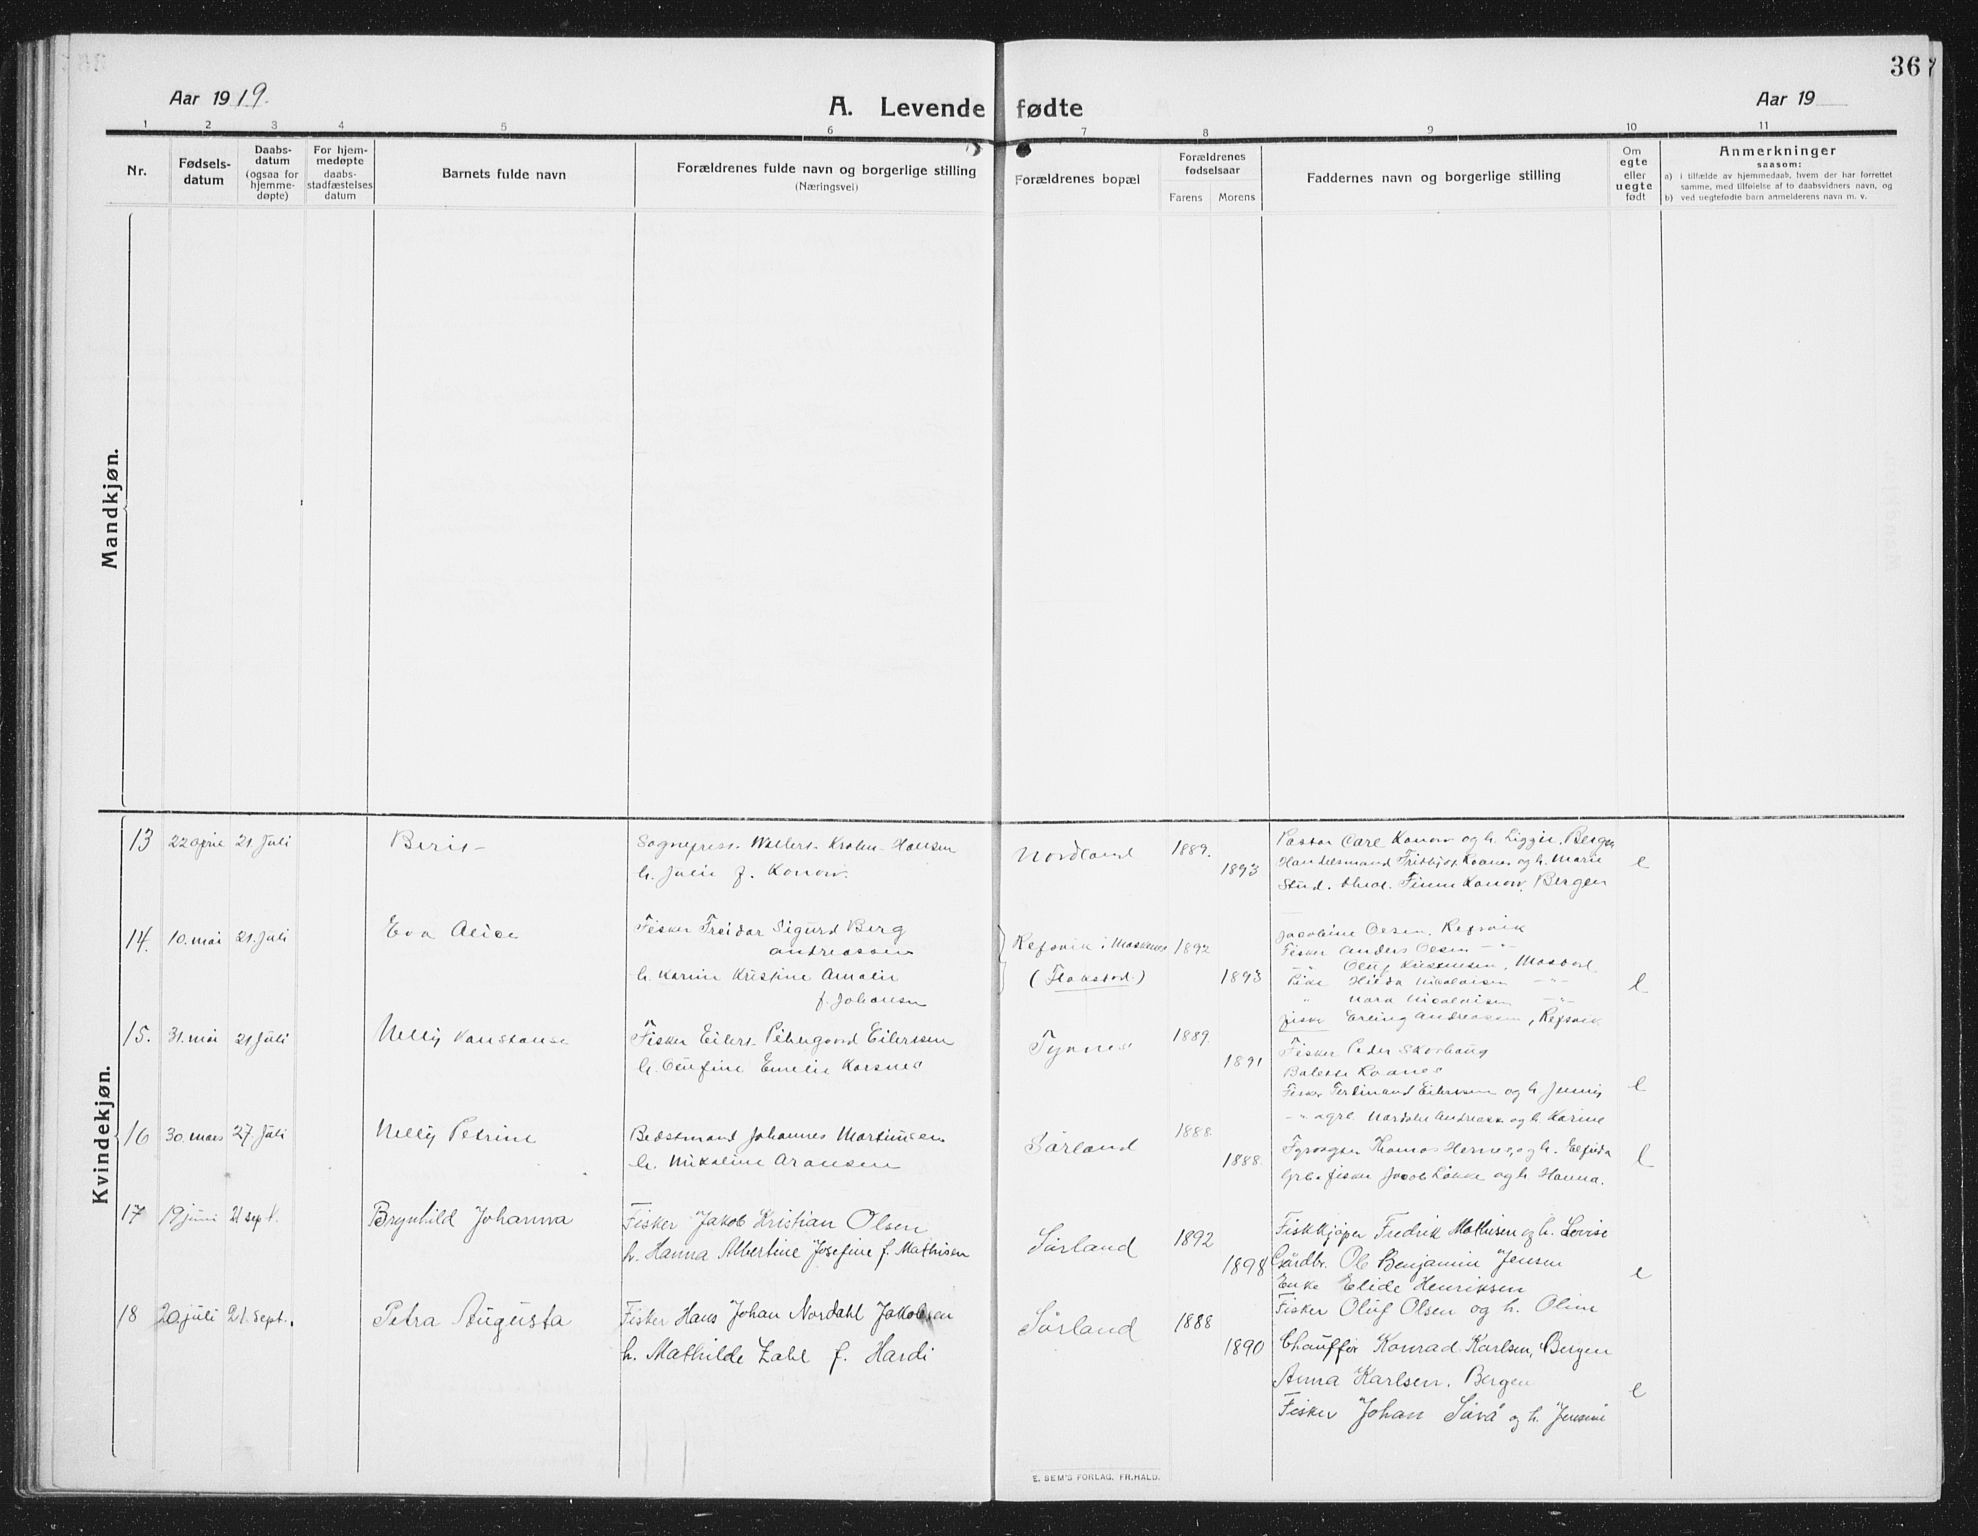 Aar 1919.
A. Levende fødte
Aar 19
36
1 2 3 4 5 6 7 8 9 10 11
Nr.
Fødsels-
datum
Daabs-
datum
(ogsaa for
hjemme-
døpte)
For hjem-
medøpte
daabs-
stadfæstelses
datum
Barnets fulde navn
Forældrenes fulde navn og borgerlige stilling
(Næringsvei)
Forældrenes bopæl
Forældrenes
fødselsaar
Farens Morens
Faddernes navn og borgerlige stilling
Om
egte
eller
uegte
født
Anmerkninger
saasom:
a) i tilfælde av hjemmedaab, hvem der har forrettet
samme, med tilføielse af to daabsvidners navn, og
b) ved uegtefødte barn anmelderens navn m. v.
Mandkjøn.
Kvindekjøn.
13 22 april 21 Juli Berit
Sogneprest Krohn Hansen
h. Julie f. Konow.
Nordland 1889. 1893
Pastor Carl Konow og h. Bergen
Handelsmand og h. Marie
Stud. theol. Finn Konow, Bergen
e
14. 10. mai 21. Juli Eva Alice
Fisker Freidar Sigurd Berg
Andreassen
h. Karine Kristine Amalie
f. Johansen
Refsvik i Moskenes
(Flakstad)
1892 1893
Jacobine Olsen, Refsvik
Fisker Anders Olsen -"-
Pike Hilda Nicolaisen -"-
" Nora Nicolaisen -"-
Fisker Erling Andreassen, Refsvik
e
15. 31. mai 21 Juli Nelly Konstanse
Fisker Eilert Eilertsen
h. Olufine Emelie Korsnes
Tyvnes 1889. 1891
Fisker Peder Skorhaug
Fisker Ferdinand Eilertsen og h. Jenny
og h. Karine
e
16 30. mars 27 Juli Nelly Petrine
Bedstmand Johannes Martinusen
h. Nikoline Aronsen
Sørland 1888. 1888.
Thomas og h. Elfrida
fisker Jacob Løkke og h. Hanna.
e
17 19 juni 21 sept. Brynhild Johanna
Fisker Jakob Kristian Olsen
h. Hanna Albertine Josefine f. Mathisen
Sørland 1892 1898
Fiskkjøper Fredrik Mathisen og h. Lovise
Gårdbr. Ole Benjamin Jensen
Enke Elide Henriksen
e
18 20 juli 21. sept. Petra Augusta
Fisker Hans Johan Nordahl Jakobsen
h. Mathilde Zahl f. Hardi
Sørland 1888 1890
Fisker Oluf Olsen og h. Oline
Chauffør Konrad Karlsen, Bergen
Anna Karlsen, Bergen
Fisker Johan Sivå og h. Jensine
e
E. SEM'S FORLAG, FR.HALD.